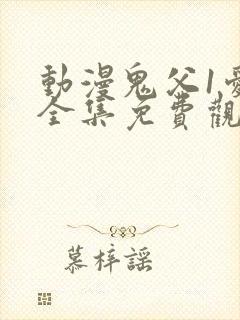 動漫鬼父1
全集免費觀
慕梓謠